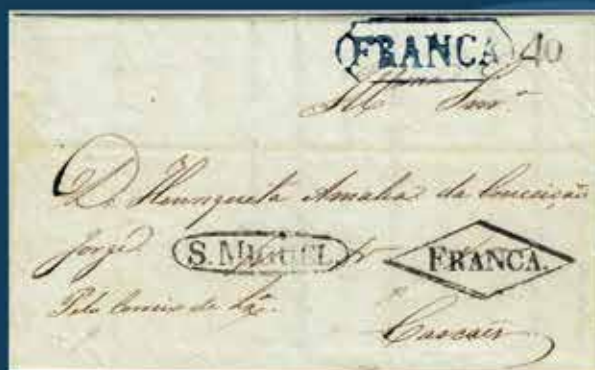 FRANCA 40
Snr.ª
D. Henriqueta Amalia da Conceição
Jorge S. MIGUEL FRANCA.
Pelo Correio de Lx.ª
Cascaes